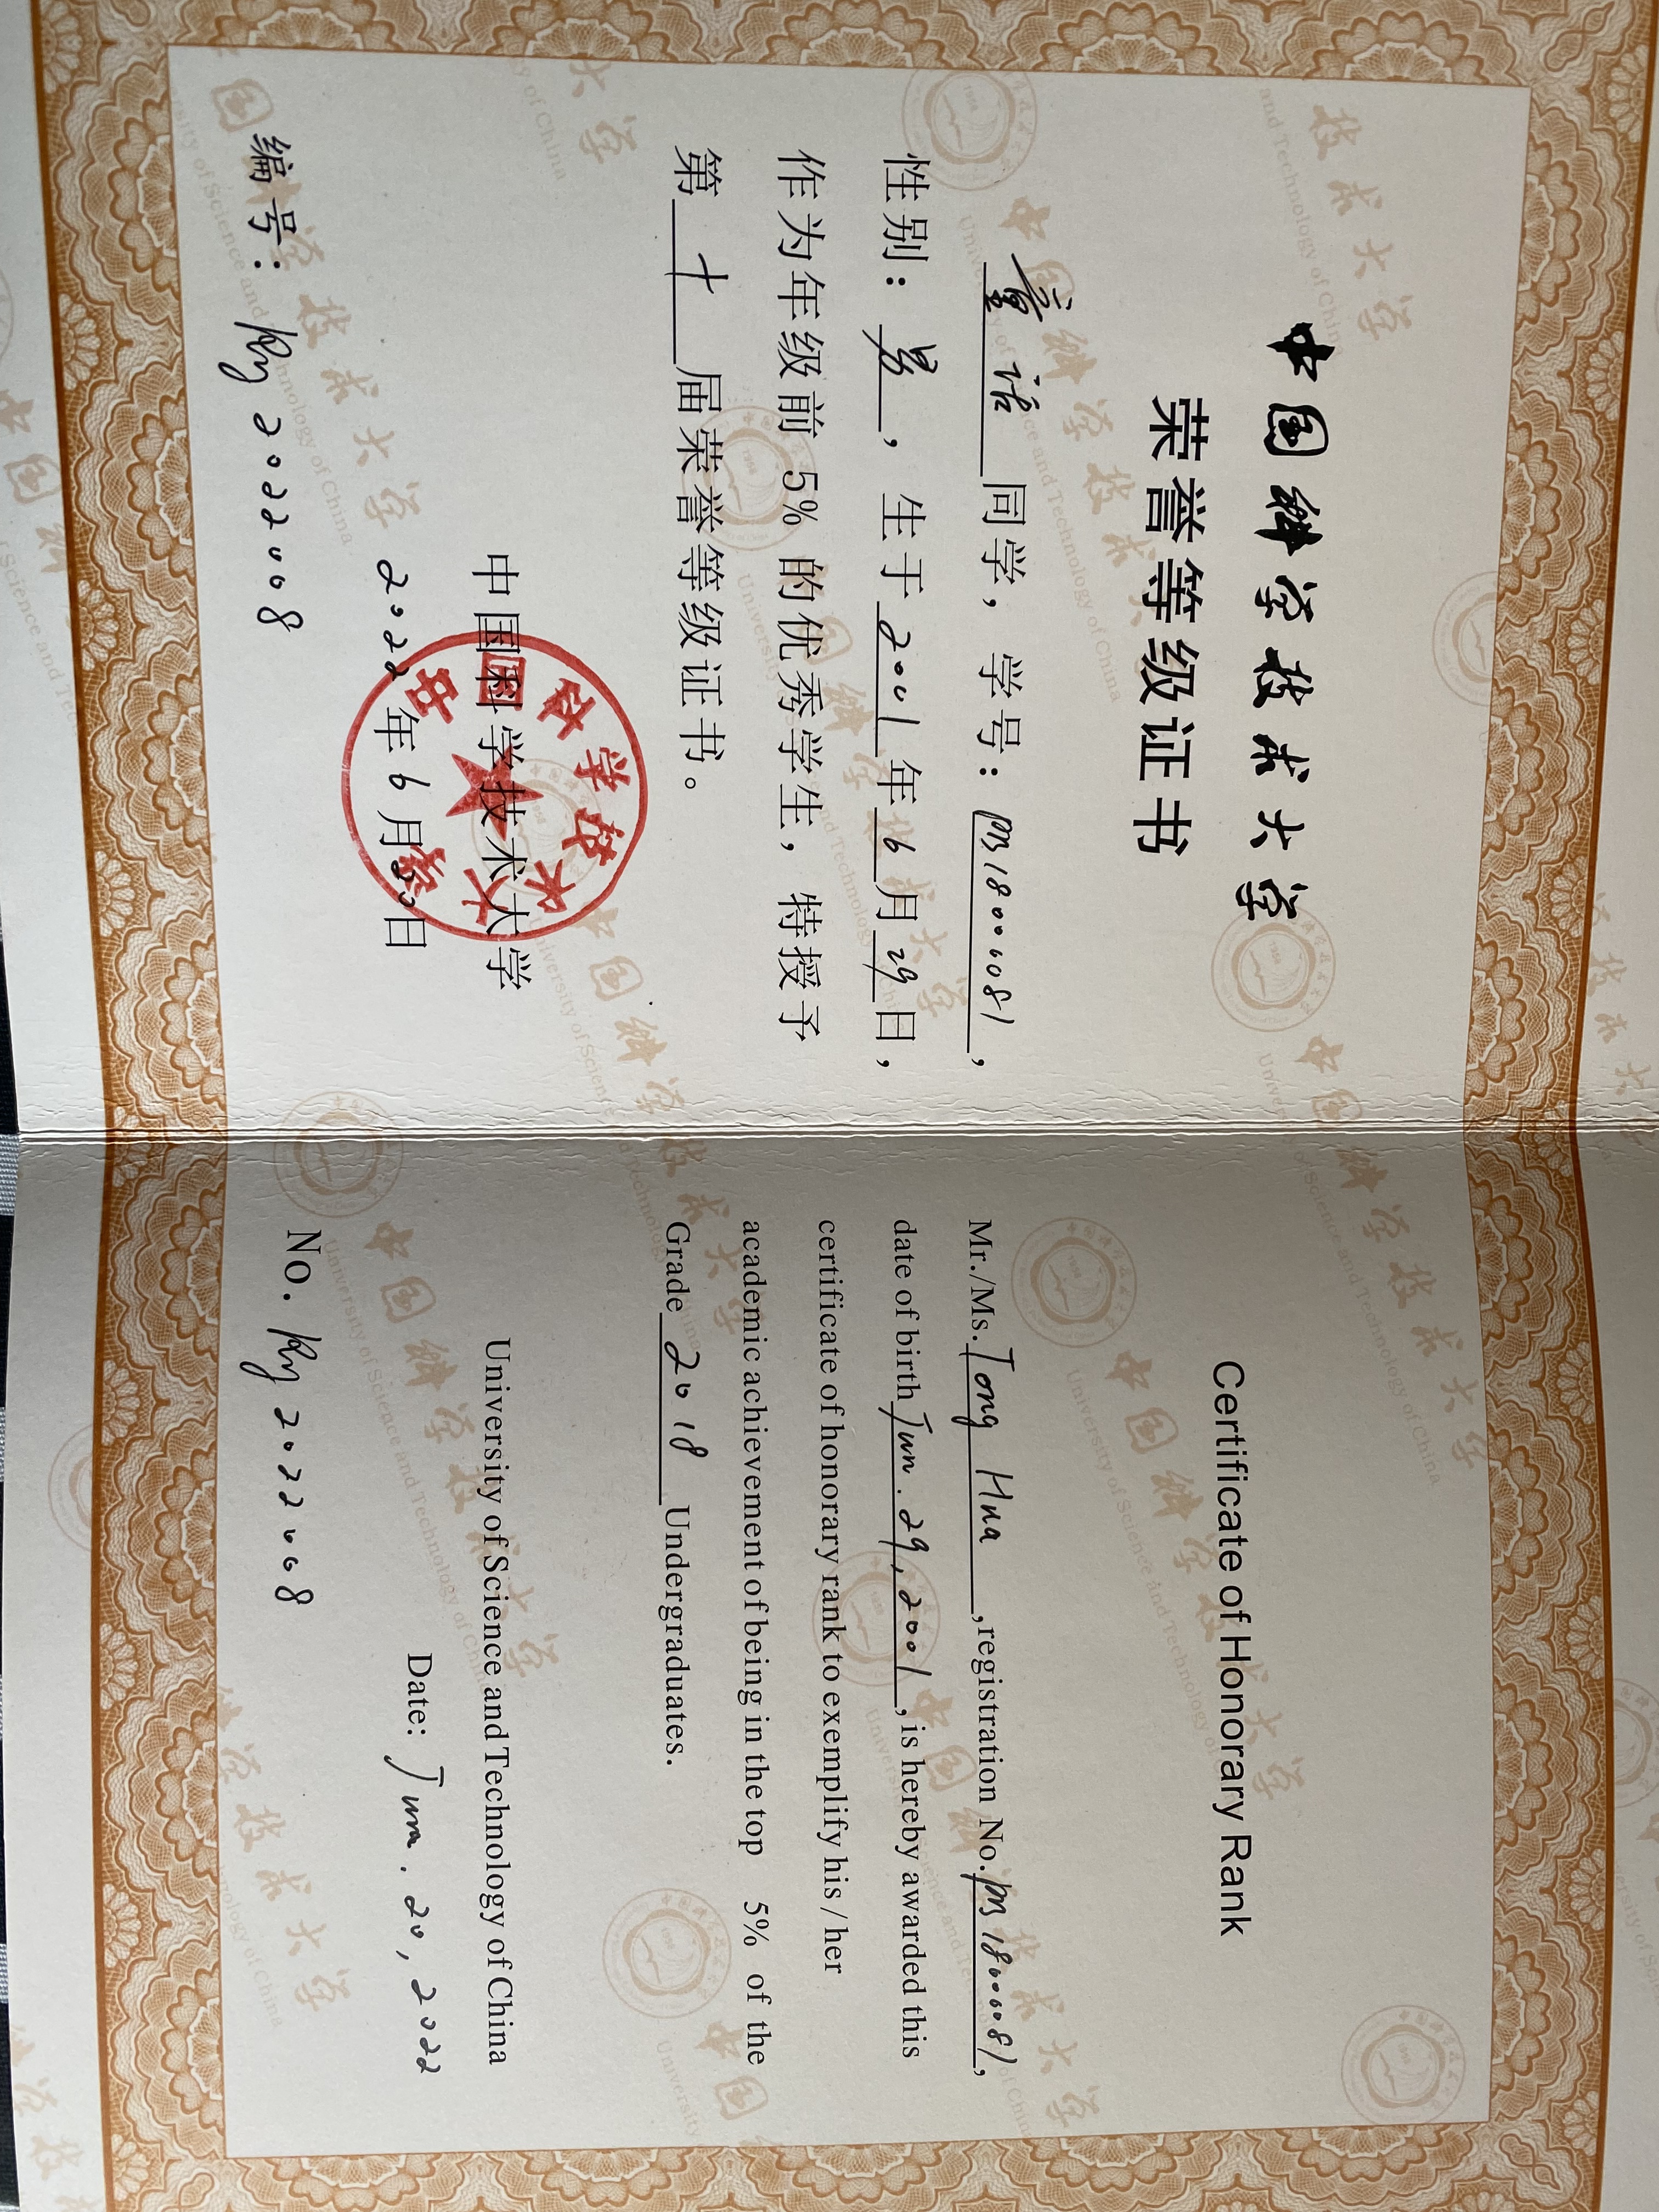 中国科学技术大学
荣誉等级证书
童话同学，学号：PB18000081，
性别：男，生于2001年6月29日，
作为年级前 5% 的优秀学生，特授予
第十届荣誉等级证书。
中国科学技术大学
中国科学技术大学
2022年6月20日
编号：Ry2022008
Certificate of Honorary Rank
Mr./Ms. Tong Hua, registration No. PB18000081,
date of birth Jun. 29, 2001, is hereby awarded this
certificate of honorary rank to exemplify his / her
academic achievement of being in the top 5% of the
Grade 2018 Undergraduates.
University of Science and Technology of China
Date: Jun. 20, 2022
No. Ry2022008